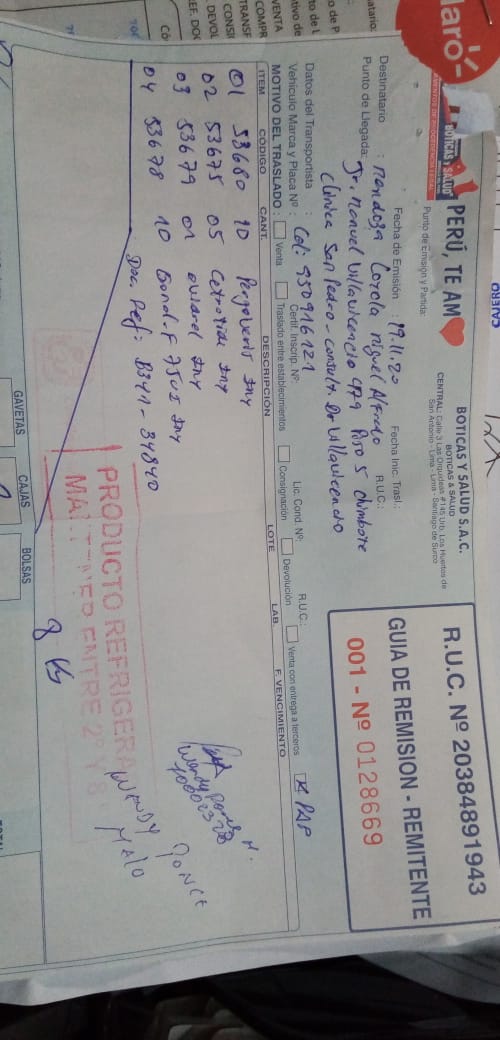 Claro-
BOTICAS Y SALUD
PERÚ, TE AM
BOTICAS Y SALUD S.A.C.
BOTICAS & SALUD
CENTRAL: Calle 3 Las Orquideas #145 Urb. Los Huertos de
San Antonio - Lima - Lima - Santiago de Surco
R.U.C. Nº 20384891943
GUIA DE REMISION - REMITENTE
001 - Nº 0128669
Punto de Emisión y Partida:
Fecha de Emisión : 19.11.20 Fecha Inic. Trasl.:
Destinatario : Mendoza Corola Miguel Alfredo R.U.C.:
Punto de Llegada: Jr. Manuel Villavicencio 479 Piso 5 chimbote
Clinica San Pedro - consult. Dr Villavicencio
Datos del Transportista : Cel: 950916121 R.U.C.:
Vehículo Marca y Placa Nº : Certif. Inscrip. Nº: Lic. Cond. Nº:
MOTIVO DEL TRASLADO : Venta Traslado entre establecimientos Consignación Devolución Venta con entrega a terceros
ITEM CÓDIGO CANT. DESCRIPCIÓN LOTE LAB. F. VENCIMIENTO
01 53680 10 Pergoveris Iny
02 53675 05 Cetrotide Iny
03 53679 01 Ovidrel Iny
04 53678 10 Gonal-F 75UI Iny
Doc Ref: B341-34840
PRODUCTO REFRIGERA
ENTRE 2° Y 8
WENDY PONCE
GAVETAS
CAJAS
BOLSAS